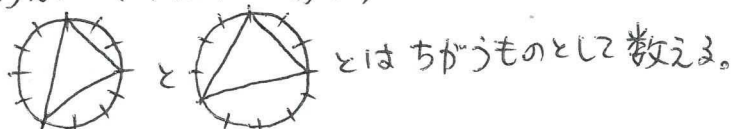 と とはちがうものとして数える。